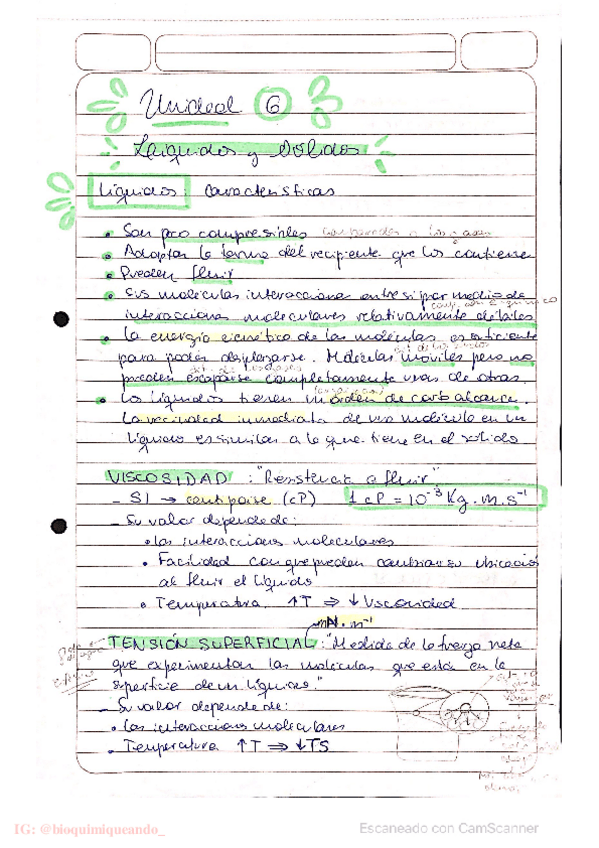 Unidad 6
Líquidos y Sólidos
Líquidos: Características
• Son poco compresibles comparados a los gases
• Adoptan la forma del recipiente que los contiene
• Pueden fluir
• Sus moléculas interaccionan entre sí por medio de
interacciones moleculares relativamente débiles
• La energía cinética de las moléculas es suficiente
para poder desplazarse. Moléculas móviles pero no
pueden escaparse completamente unas de otras.
• Los líquidos tienen un orden de corto alcance.
La vecindad inmediata de una molécula en un
líquido es similar a la que tiene en el sólido
VISCOSIDAD : "Resistencia a fluir"
- SI → centipoise (cP) 1 cP = 10⁻³ Kg . m . s⁻¹
- Su valor depende de:
• Las interacciones moleculares
• Facilidad con que pueden cambiar su ubicación
al fluir el líquido
• Temperatura ↑T ⇒ ↓ Viscosidad
mN . m⁻¹
TENSIÓN SUPERFICIAL : "Medida de la fuerza neta
que experimentan las moléculas que está en la
superficie de un líquido."
- Su valor depende de:
• Las interacciones moleculares
• Temperatura ↑T ⇒ ↓TS
IG: @bioquimiqueando_
Escaneado con CamScanner